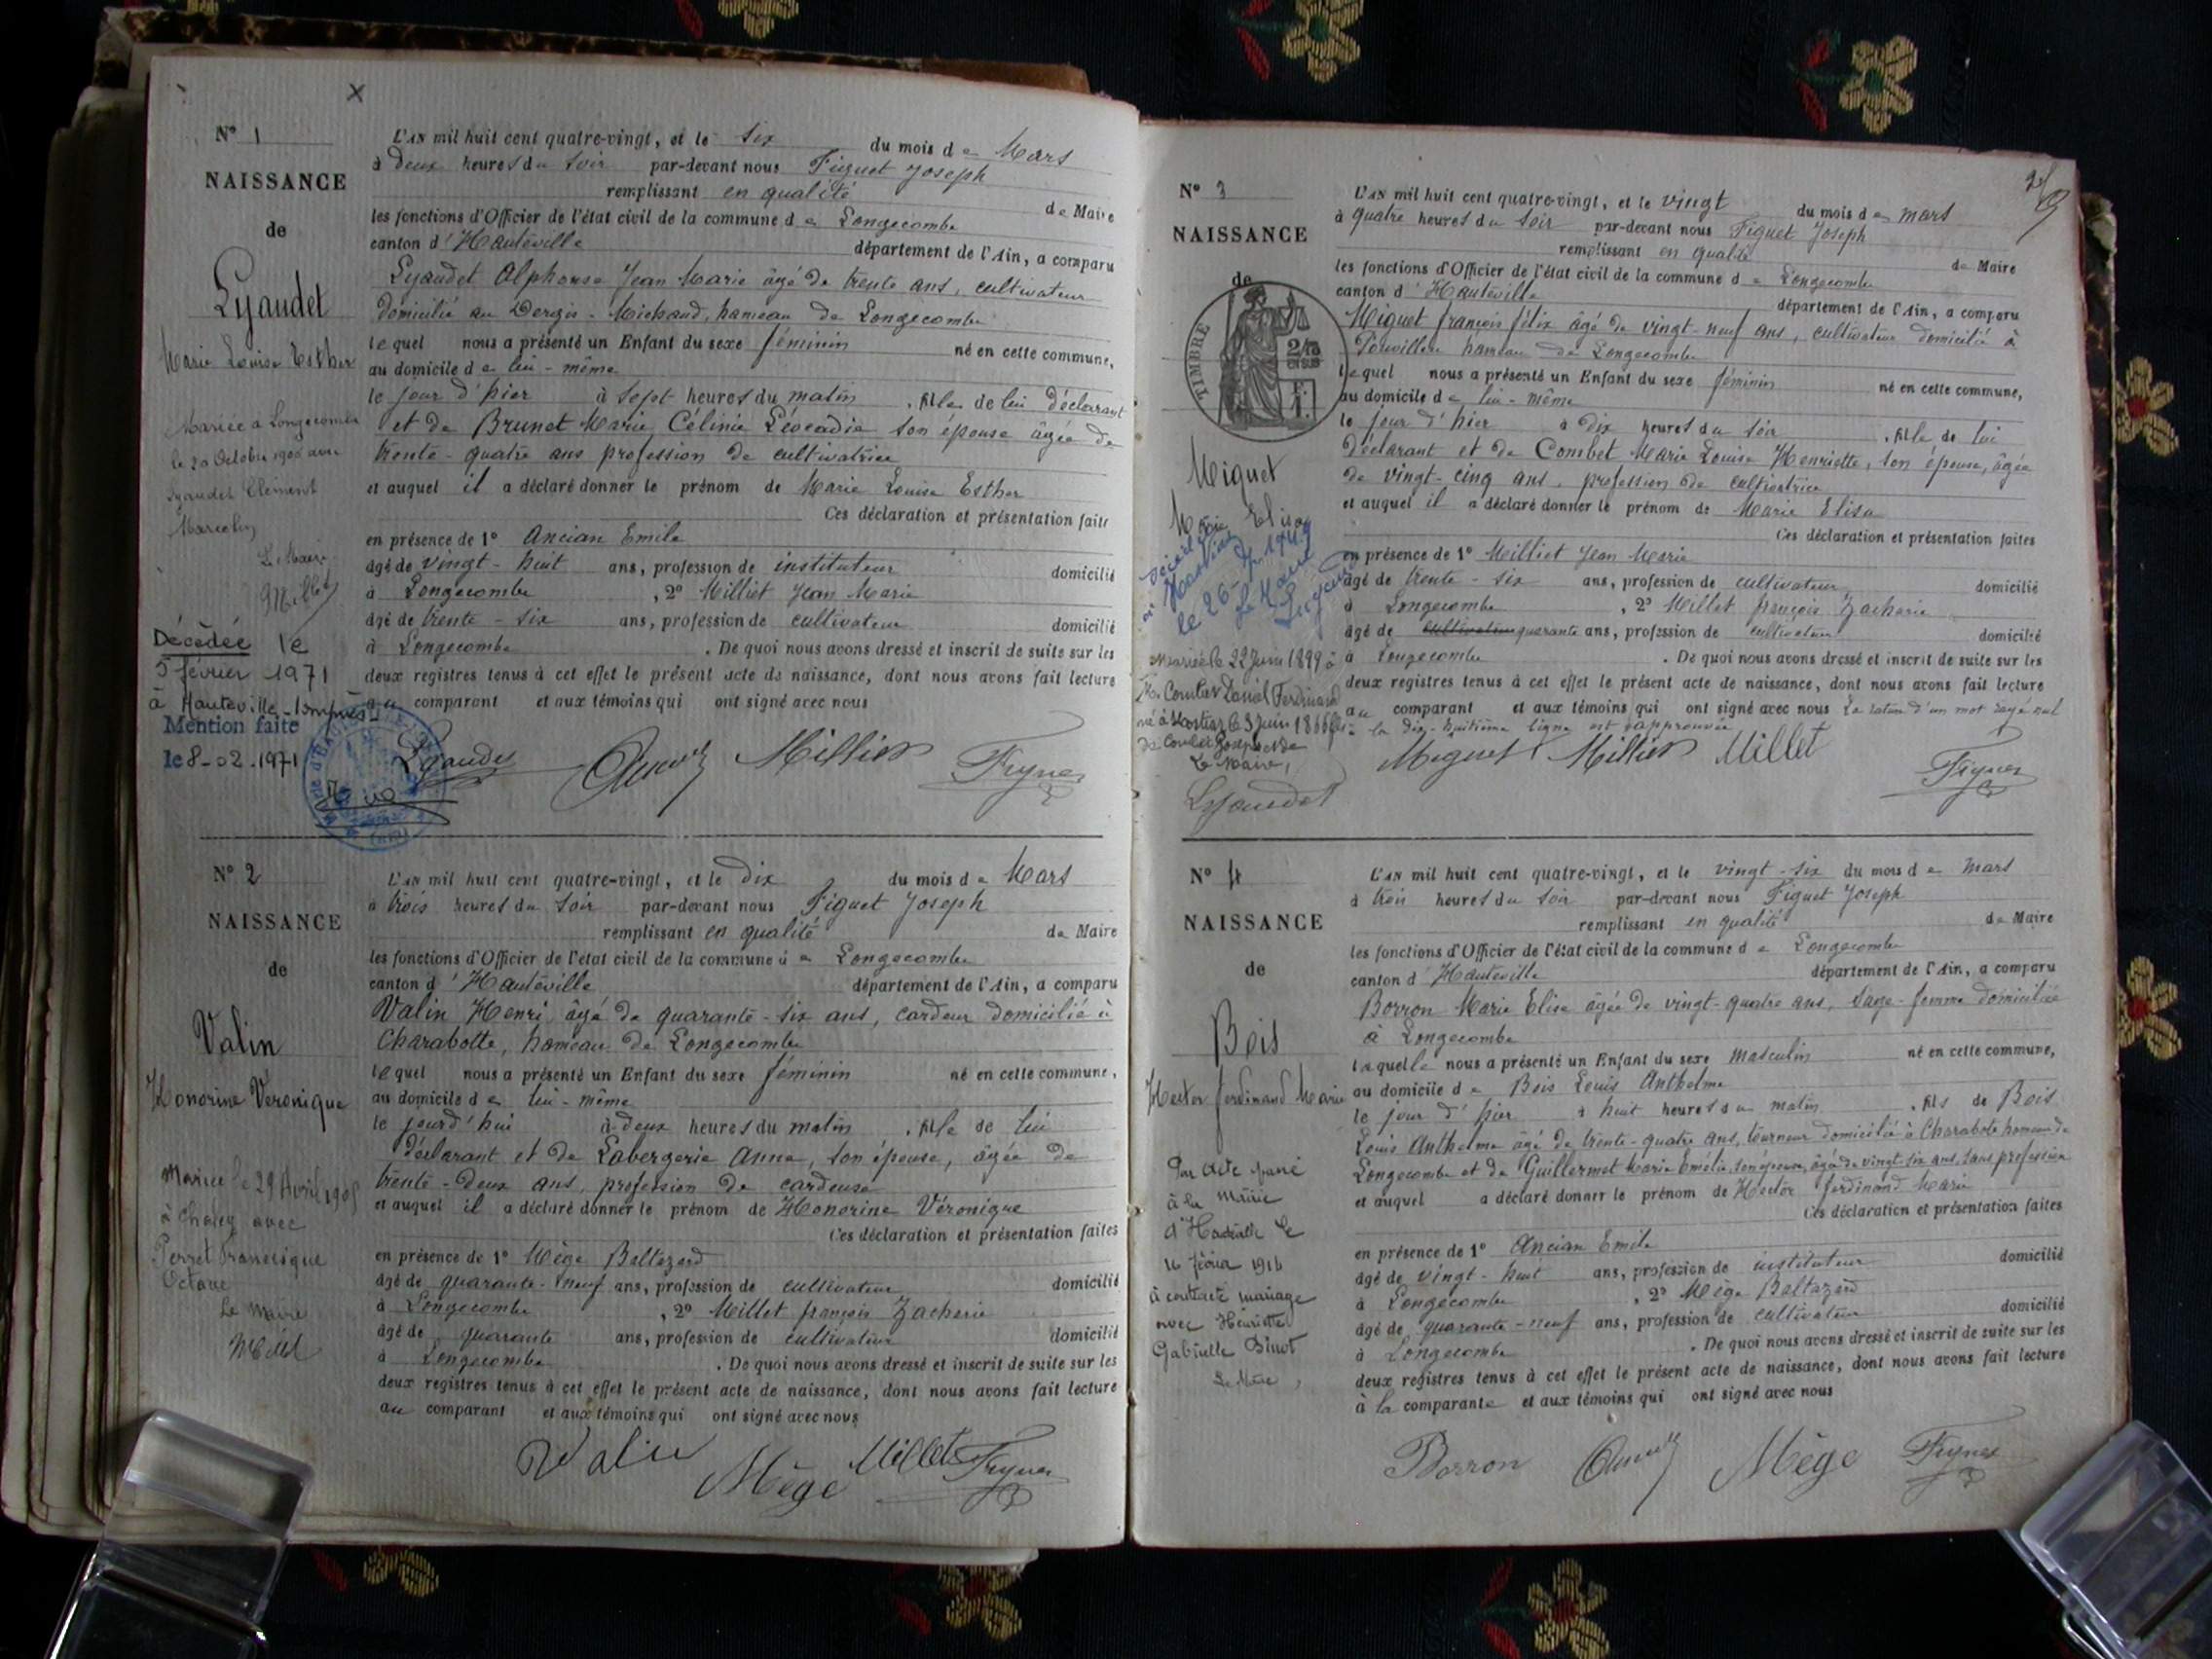 N° 1
NAISSANCE
de
Lyaudet
Marie Louise Esther
Mariée à Longecombe
le 20 Octobre avec
Lyaudet Clément
Marcelin
Le Maire
Millet
Décédée le
5 février 1971
à Hauteville-Lompnès
Mention faite
le 8-02-1971
L'AN mil huit cent quatre-vingt, et le six du mois de Mars
à deux heures du soir par-devant nous Figuet Joseph
remplissant en qualité de Maire
les fonctions d'Officier de l'état civil de la commune de Longecombe
canton d'Hauteville département de l'Ain, a comparu
Lyaudet Alphonse Jean Marie âgé de trente ans, cultivateur
domicilié au Dergis-Michaud, hameau de Longecombe
lequel nous a présenté un Enfant du sexe féminin né en cette commune,
au domicile de lui-même
le jour d'hier à sept heures du matin, fille de lui déclarant
et de Brunet Marie Célinie Léocadie son épouse âgée de
trente-quatre ans profession de cultivatrice
et auquel il a déclaré donner le prénom de Marie Louise Esther
Ces déclaration et présentation faites
en présence de 1° Ancian Emile
âgé de vingt-huit ans, profession de instituteur domicilié
à Longecombe, 2° Milliet Jean Marie
âgé de trente-six ans, profession de cultivateur domicilié
à Longecombe. De quoi nous avons dressé et inscrit de suite sur les
deux registres tenus à cet effet le présent acte de naissance, dont nous avons fait lecture
au comparant et aux témoins qui ont signé avec nous
Lyaudet Milliet
N° 2
NAISSANCE
de
Valin
Honorine Véronique
Mariée le 29 Avril 1905
à Chaley avec
Perret Francisque
Octave
Le Maire
Millet
L'AN mil huit cent quatre-vingt, et le dix du mois de Mars
à trois heures du soir par-devant nous Figuet Joseph
remplissant en qualité de Maire
les fonctions d'Officier de l'état civil de la commune de Longecombe
canton d'Hauteville département de l'Ain, a comparu
Valin Henri âgé de quarante-six ans, cardeur domicilié à
Charabotte, hameau de Longecombe
lequel nous a présenté un Enfant du sexe féminin né en cette commune,
au domicile de lui-même
le jourd'hui à deux heures du matin, fille de lui
déclarant et de Labergerie Anne, son épouse, âgée de
trente-deux ans, profession de cardeuse
et auquel il a déclaré donner le prénom de Honorine Véronique
Ces déclaration et présentation faites
en présence de 1° Mège Baltazard
âgé de quarante-neuf ans, profession de cultivateur domicilié
à Longecombe, 2° Millet françois Zacherie
âgé de quarante ans, profession de cultivateur domicilié
à Longecombe. De quoi nous avons dressé et inscrit de suite sur les
deux registres tenus à cet effet le présent acte de naissance, dont nous avons fait lecture
au comparant et aux témoins qui ont signé avec nous
Valin Mège Millet
N° 3
NAISSANCE
de
TIMBRE
Miguet
Marie Elisa
Mariée le 22 Juin 1899 à
Combet Daniel Ferdinand
Le Maire,
Lyaudet
L'AN mil huit cent quatre-vingt, et le vingt du mois de mars
à quatre heures du soir par-devant nous Figuet Joseph
remplissant en qualité de Maire
les fonctions d'Officier de l'état civil de la commune de Longecombe
canton d'Hauteville département de l'Ain, a comparu
Miguet françois félix âgé de vingt-neuf ans, cultivateur domicilié à
hameau de Longecombe
lequel nous a présenté un Enfant du sexe féminin né en cette commune,
au domicile de lui-même
le jour d'hier à dix heures du soir, fille de lui
déclarant et de Combet Marie Louise Henriette, son épouse, âgée
de vingt-cinq ans, profession de cultivatrice
et auquel il a déclaré donner le prénom de Marie Elisa
Ces déclaration et présentation faites
en présence de 1° Milliet Jean Marie
âgé de trente-six ans, profession de cultivateur domicilié
à Longecombe, 2° Millet françois Zacherie
âgé de cultivateur quarante ans, profession de cultivateur domicilié
à Longecombe. De quoi nous avons dressé et inscrit de suite sur les
deux registres tenus à cet effet le présent acte de naissance, dont nous avons fait lecture
au comparant et aux témoins qui ont signé avec nous La rature d'un mot rayé nul
à la dix-huitième ligne est approuvée
Miguet Milliet Millet
N° 4
NAISSANCE
de
Bois
Hector ferdinand Marie
Par acte passé
à la mairie
d'Hauteville le
16 février 1916
a contracté mariage
avec Henriette
Gabrielle Binot
Le Maire,
L'AN mil huit cent quatre-vingt, et le vingt-six du mois de mars
à trois heures du soir par-devant nous Figuet Joseph
remplissant en qualité de Maire
les fonctions d'Officier de l'état civil de la commune de Longecombe
canton d'Hauteville département de l'Ain, a comparu
Borron Marie Elise âgée de vingt-quatre ans, Sage-femme domiciliée
à Longecombe
laquelle nous a présenté un Enfant du sexe masculin né en cette commune,
au domicile de Bois Louis Anthelme
le jour d'hier à huit heures du matin, fils de Bois
Louis Anthelme âgé de trente-quatre ans, tourneur domicilié à Charabote hameau de
Longecombe et de Guillermet Marie Emélie, son épouse, âgée de vingt-six ans, sans profession
et auquel a déclaré donner le prénom de Hector ferdinand Marie
Ces déclaration et présentation faites
en présence de 1° Ancian Emile
âgé de vingt-huit ans, profession de instituteur domicilié
à Longecombe, 2° Mège Baltazard
âgé de quarante-neuf ans, profession de cultivateur domicilié
à Longecombe. De quoi nous avons dressé et inscrit de suite sur les
deux registres tenus à cet effet le présent acte de naissance, dont nous avons fait lecture
à la comparante et aux témoins qui ont signé avec nous
Borron Mège